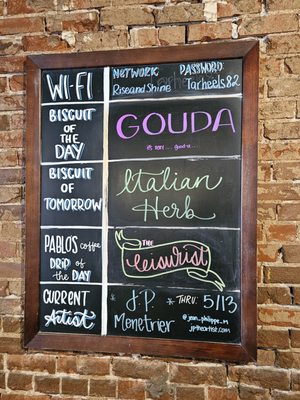 WI-FI
NETWORK PASSWORD
RiseandShine Tarheels82
BISCUIT
OF THE
DAY
GOUDA
is very... good-a...
BISCUIT
OF
TOMORROW
Italian
Herb
PABLO'S coffee
DRIP
of the DAY
THE
Leiswrist
CURRENT
Artist
* J.P. * THRU: 5/13
Menetrier
@jean_philippe_m
jpmeartist.com